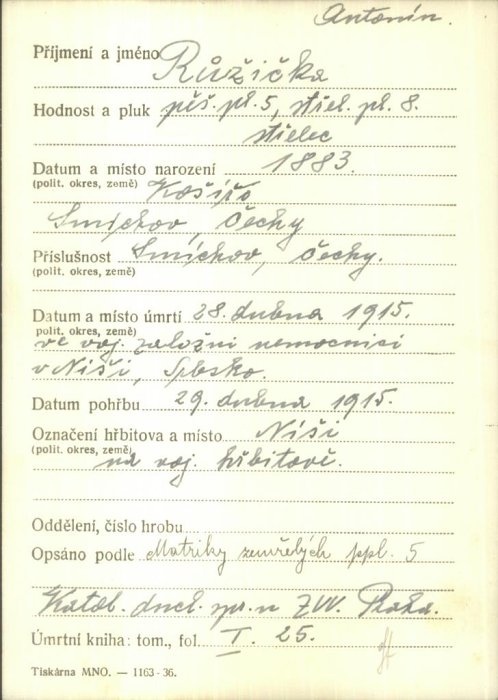 Antonín.
Příjmení a jméno Růžička
Hodnost a pluk pěš. pl. 5, střel. pl. 8.
střelec
Datum a místo narození 1883.
(polit. okres, země) Košíře
Smíchov, Čechy
Příslušnost Smíchov, Čechy.
(polit. okres, země)
Datum a místo úmrtí 28. dubna 1915.
polit. okres, země)
ve voj. záložní nemocnici
v Niši, Srbsko.
Datum pohřbu 29. dubna 1915.
Označení hřbitova a místo Niši
(polit. okres, země)
na voj. hřbitově.
Oddělení, číslo hrobu
Opsáno podle Matriky zemřelých ppl. 5
Katol. duch. spr. u ZVV. Praha.
Úmrtní kniha: tom., fol. I. 25.
Tiskárna MNO. — 1163-36.